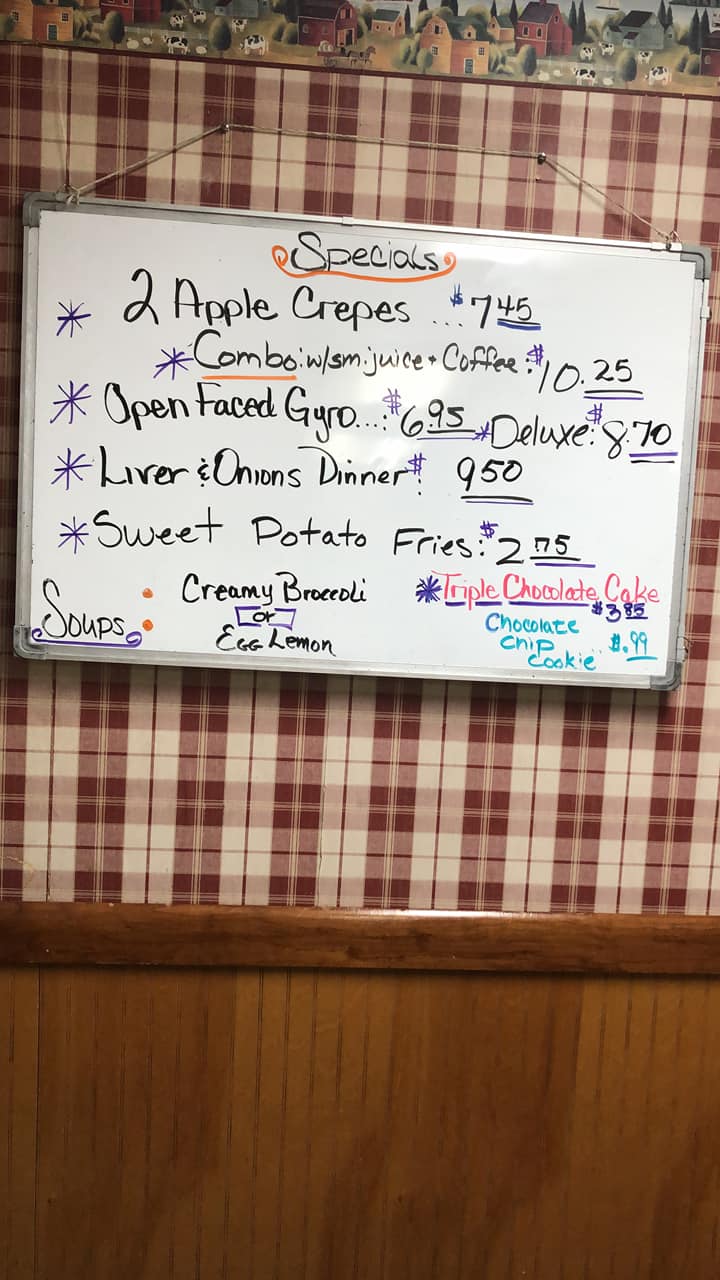 Specials
* 2 Apple Crepes ... $7 45
* Combo: w/sm. juice + Coffee: $10.25
* Open Faced Gyro...: $6 95 * Deluxe: $8.70
* Liver & Onions Dinner: $ 9 50
* Sweet Potato Fries: $2 75
Soups: Creamy Broccoli
or
Egg Lemon
* Triple Chocolate Cake
$3 85
Chocolate
Chip
Cookie .. $.99